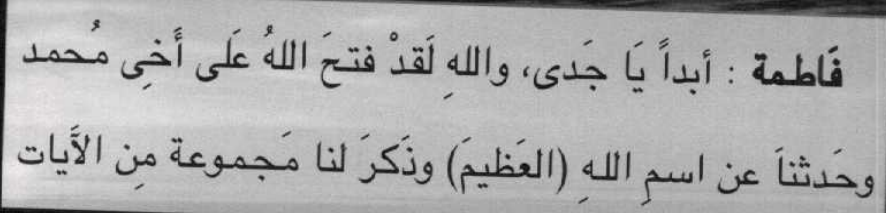 فَاطمة : أبداً يَا جَدى، واللهِ لَقدْ فتحَ اللهُ عَلى أَخِى مُحمد
وحَدثناَ عن اسمِ اللهِ (العَظيمَ) وذَكرَ لنا مَجموعة مِن الآَيات